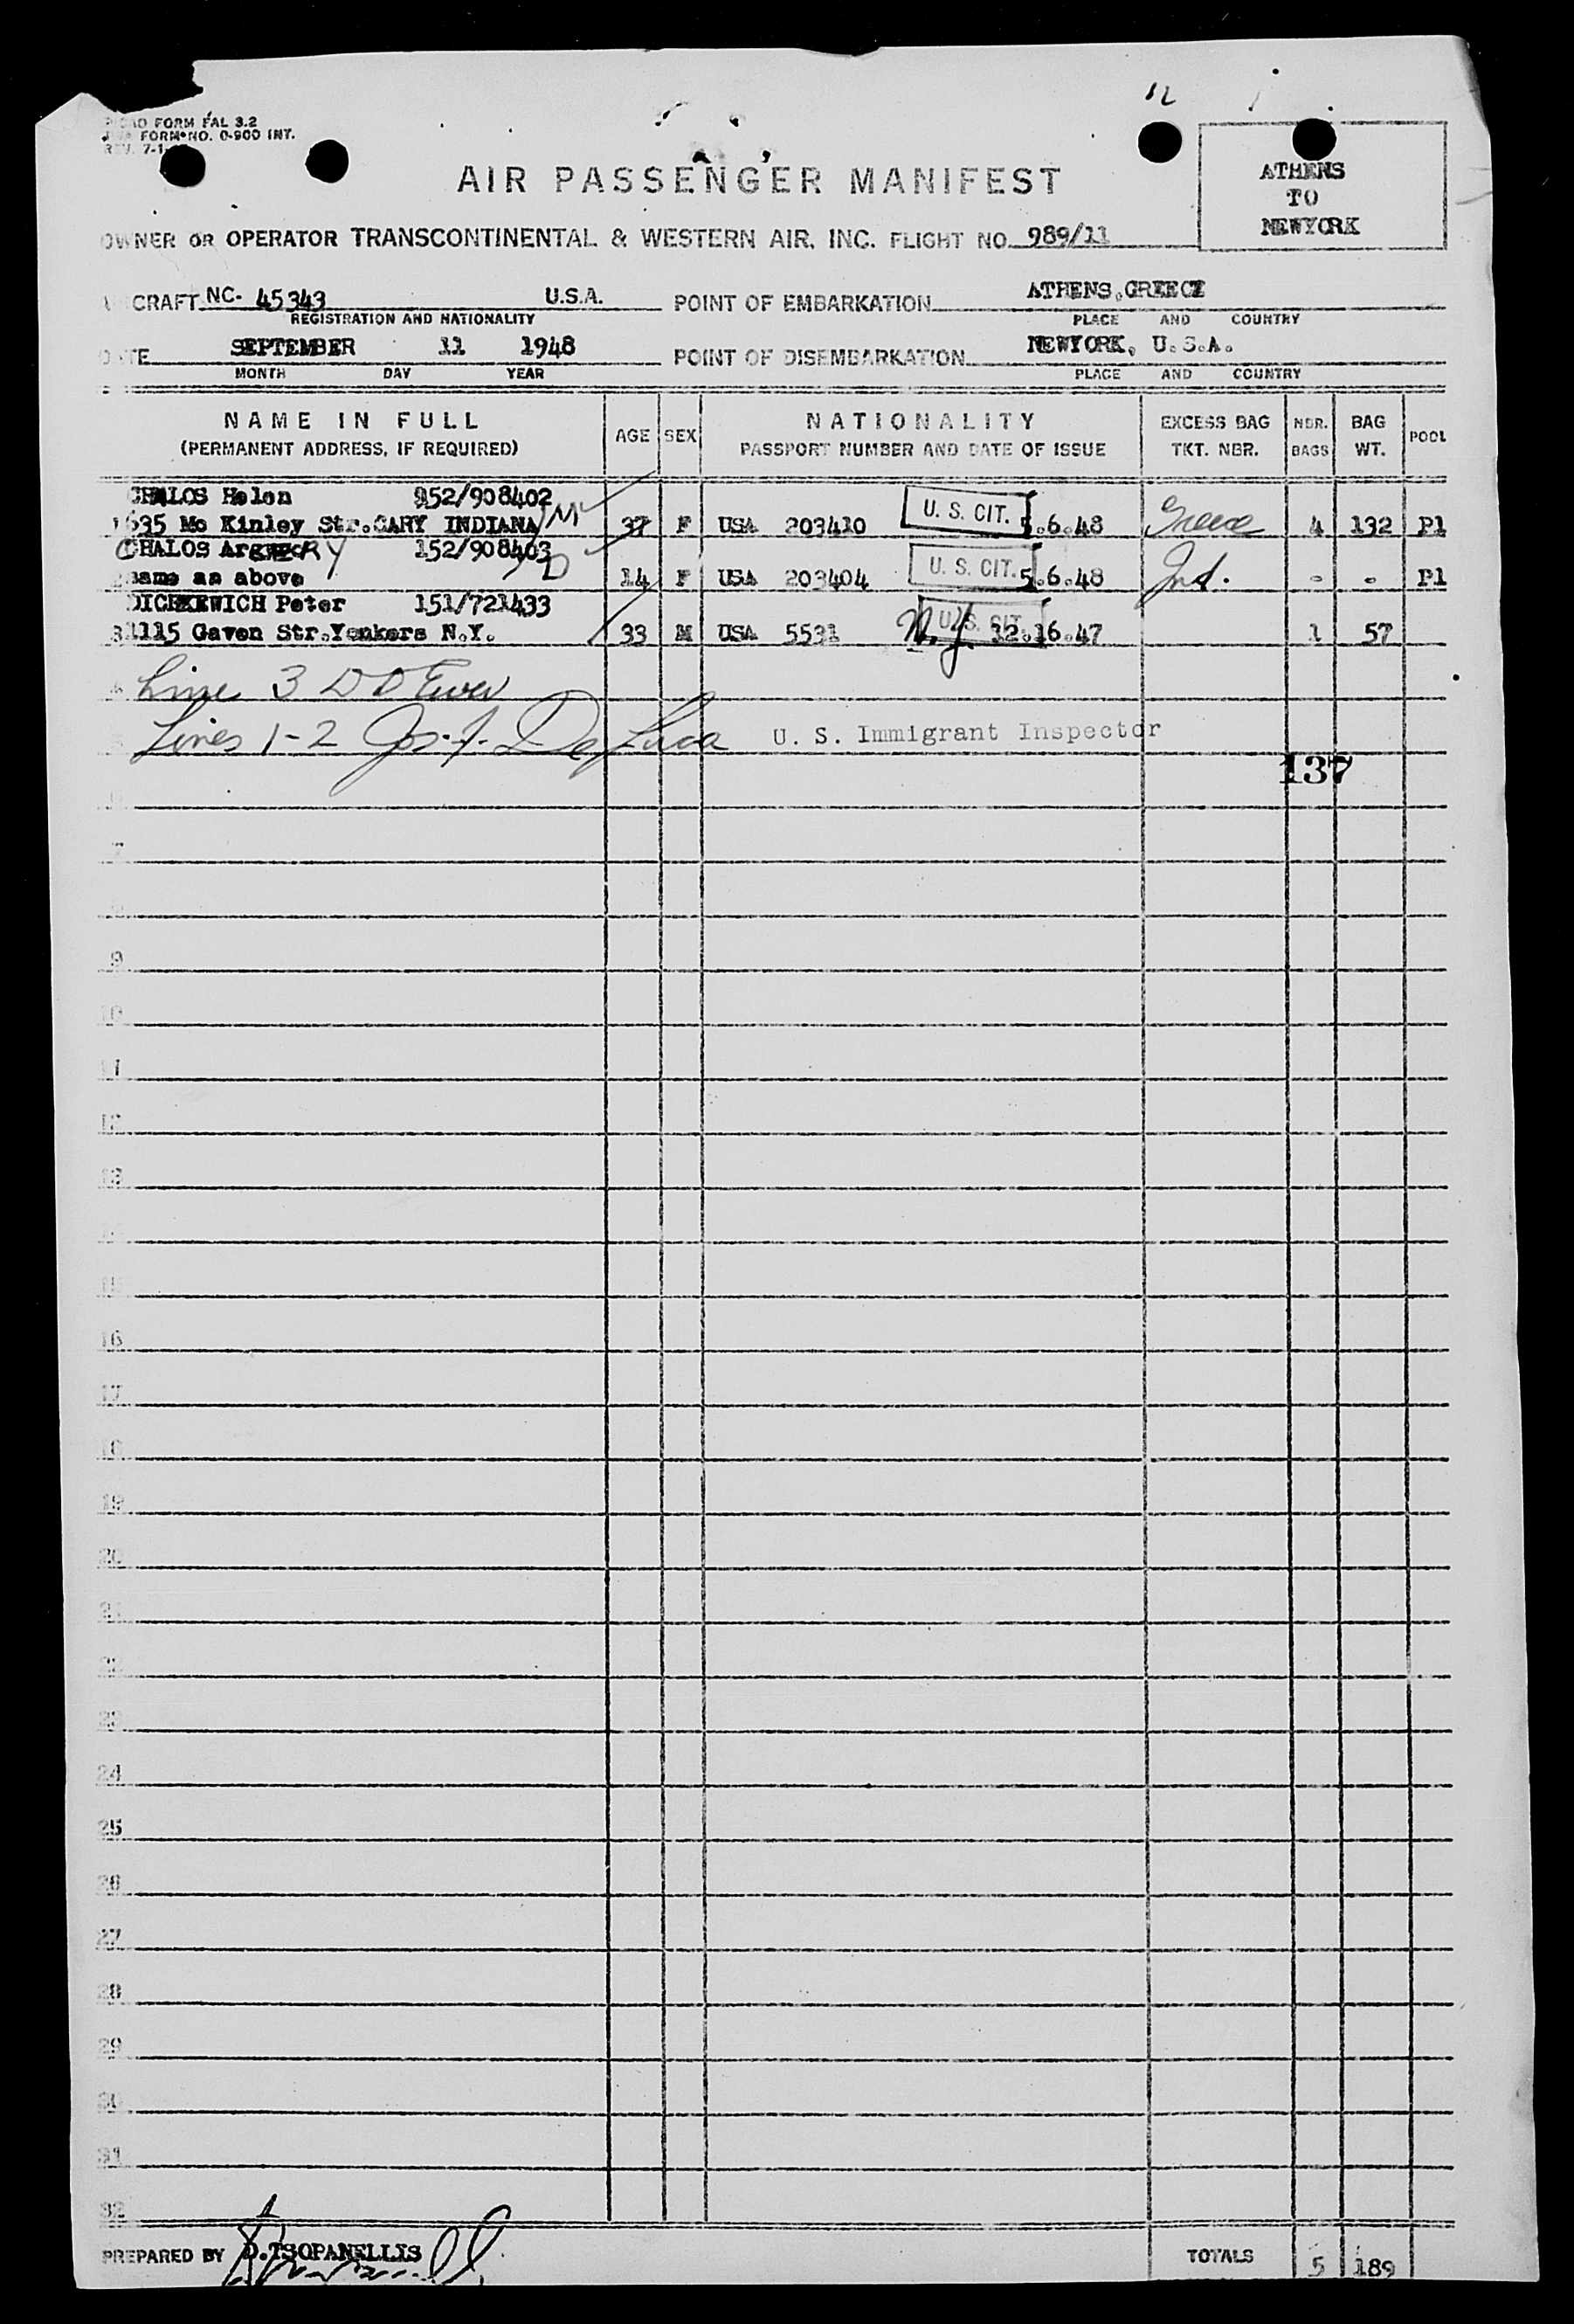 12
FORM FAL 3.2
FORM NO. 0-900 INT.
REV. 7-1-
AIR PASSENGER MANIFEST
ATHENS
TO
NEWYORK
OWNER OR OPERATOR TRANSCONTINENTAL & WESTERN AIR, INC. FLIGHT NO. 989/11
CRAFT NC- 45343 U.S.A. POINT OF EMBARKATION ATHENS,GREECE
REGISTRATION AND NATIONALITY PLACE AND COUNTRY
DATE SEPTEMBER 11 1948 POINT OF DISEMBARKATION NEWYORK, U.S.A.
MONTH DAY YEAR PLACE AND COUNTRY
NAME IN FULL AGE SEX NATIONALITY EXCESS BAG NBR. BAG POOL
(PERMANENT ADDRESS, IF REQUIRED) PASSPORT NUMBER AND DATE OF ISSUE TKT. NBR. BAGS WT.
CHALOS Helen 152/908402
1635 Mc Kinley Str.GARY INDIANA M 37 F USA 203410 U. S. CIT. 5.6.48 Greece 4 132 P1
CHALOS RY 152/908403
same as above D 14 F USA 203404 U. S. CIT. 5.6.48 Ind. - - P1
DICHKEWICH Peter 151/721433
3 1115 Gaven Str.Yonkers N.Y. 33 M USA 5531 N.Y. U. S. CIT. 12.16.47 1 57
4 Line 3 D D
5 Lines 1-2 Jos. F. De Luca U. S. Immigrant Inspector
137
6
7
8
9
10
11
12
13
14
15
16
17
18
19
20
21
22
23
24
25
26
27
28
29
30
31
32
PREPARED BY D.TSOPANELLIS TOTALS 5 189